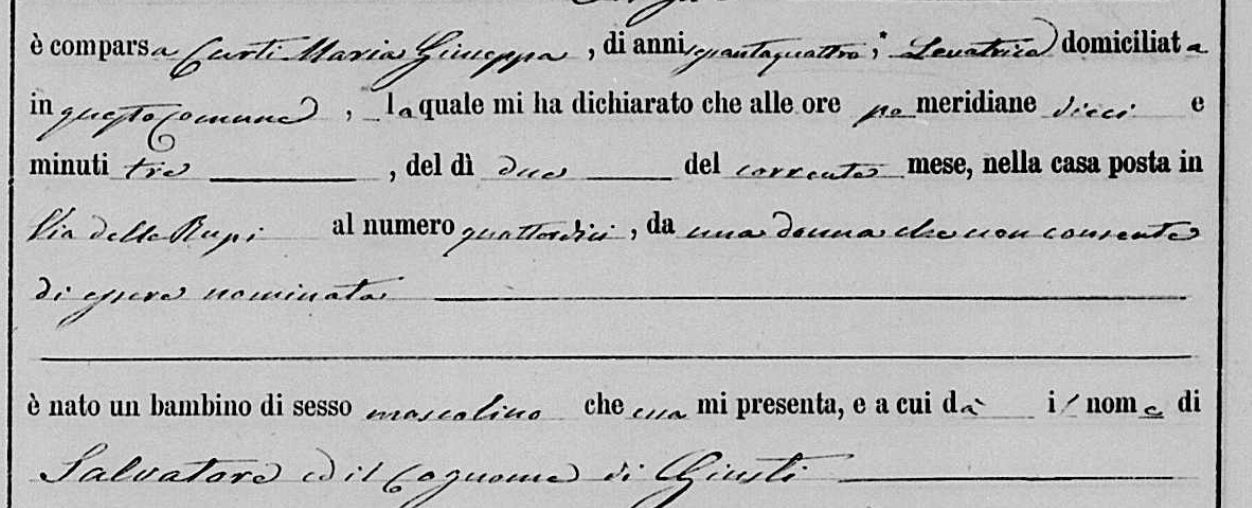 è comparsa Curti Maria Giuseppa, di anni quantaquattro, Levatrice domiciliata
in questo Comune, la quale mi ha dichiarato che alle ore po meridiane dieci e
minuti tre, del dì due del corrente mese, nella casa posta in
Via delle Rupi al numero quattordici, da una donna che non consente
di essere nominata
è nato un bambino di sesso mascolino che essa mi presenta, e a cui dà il nome di
Salvatore ed il Cognome di Giusti